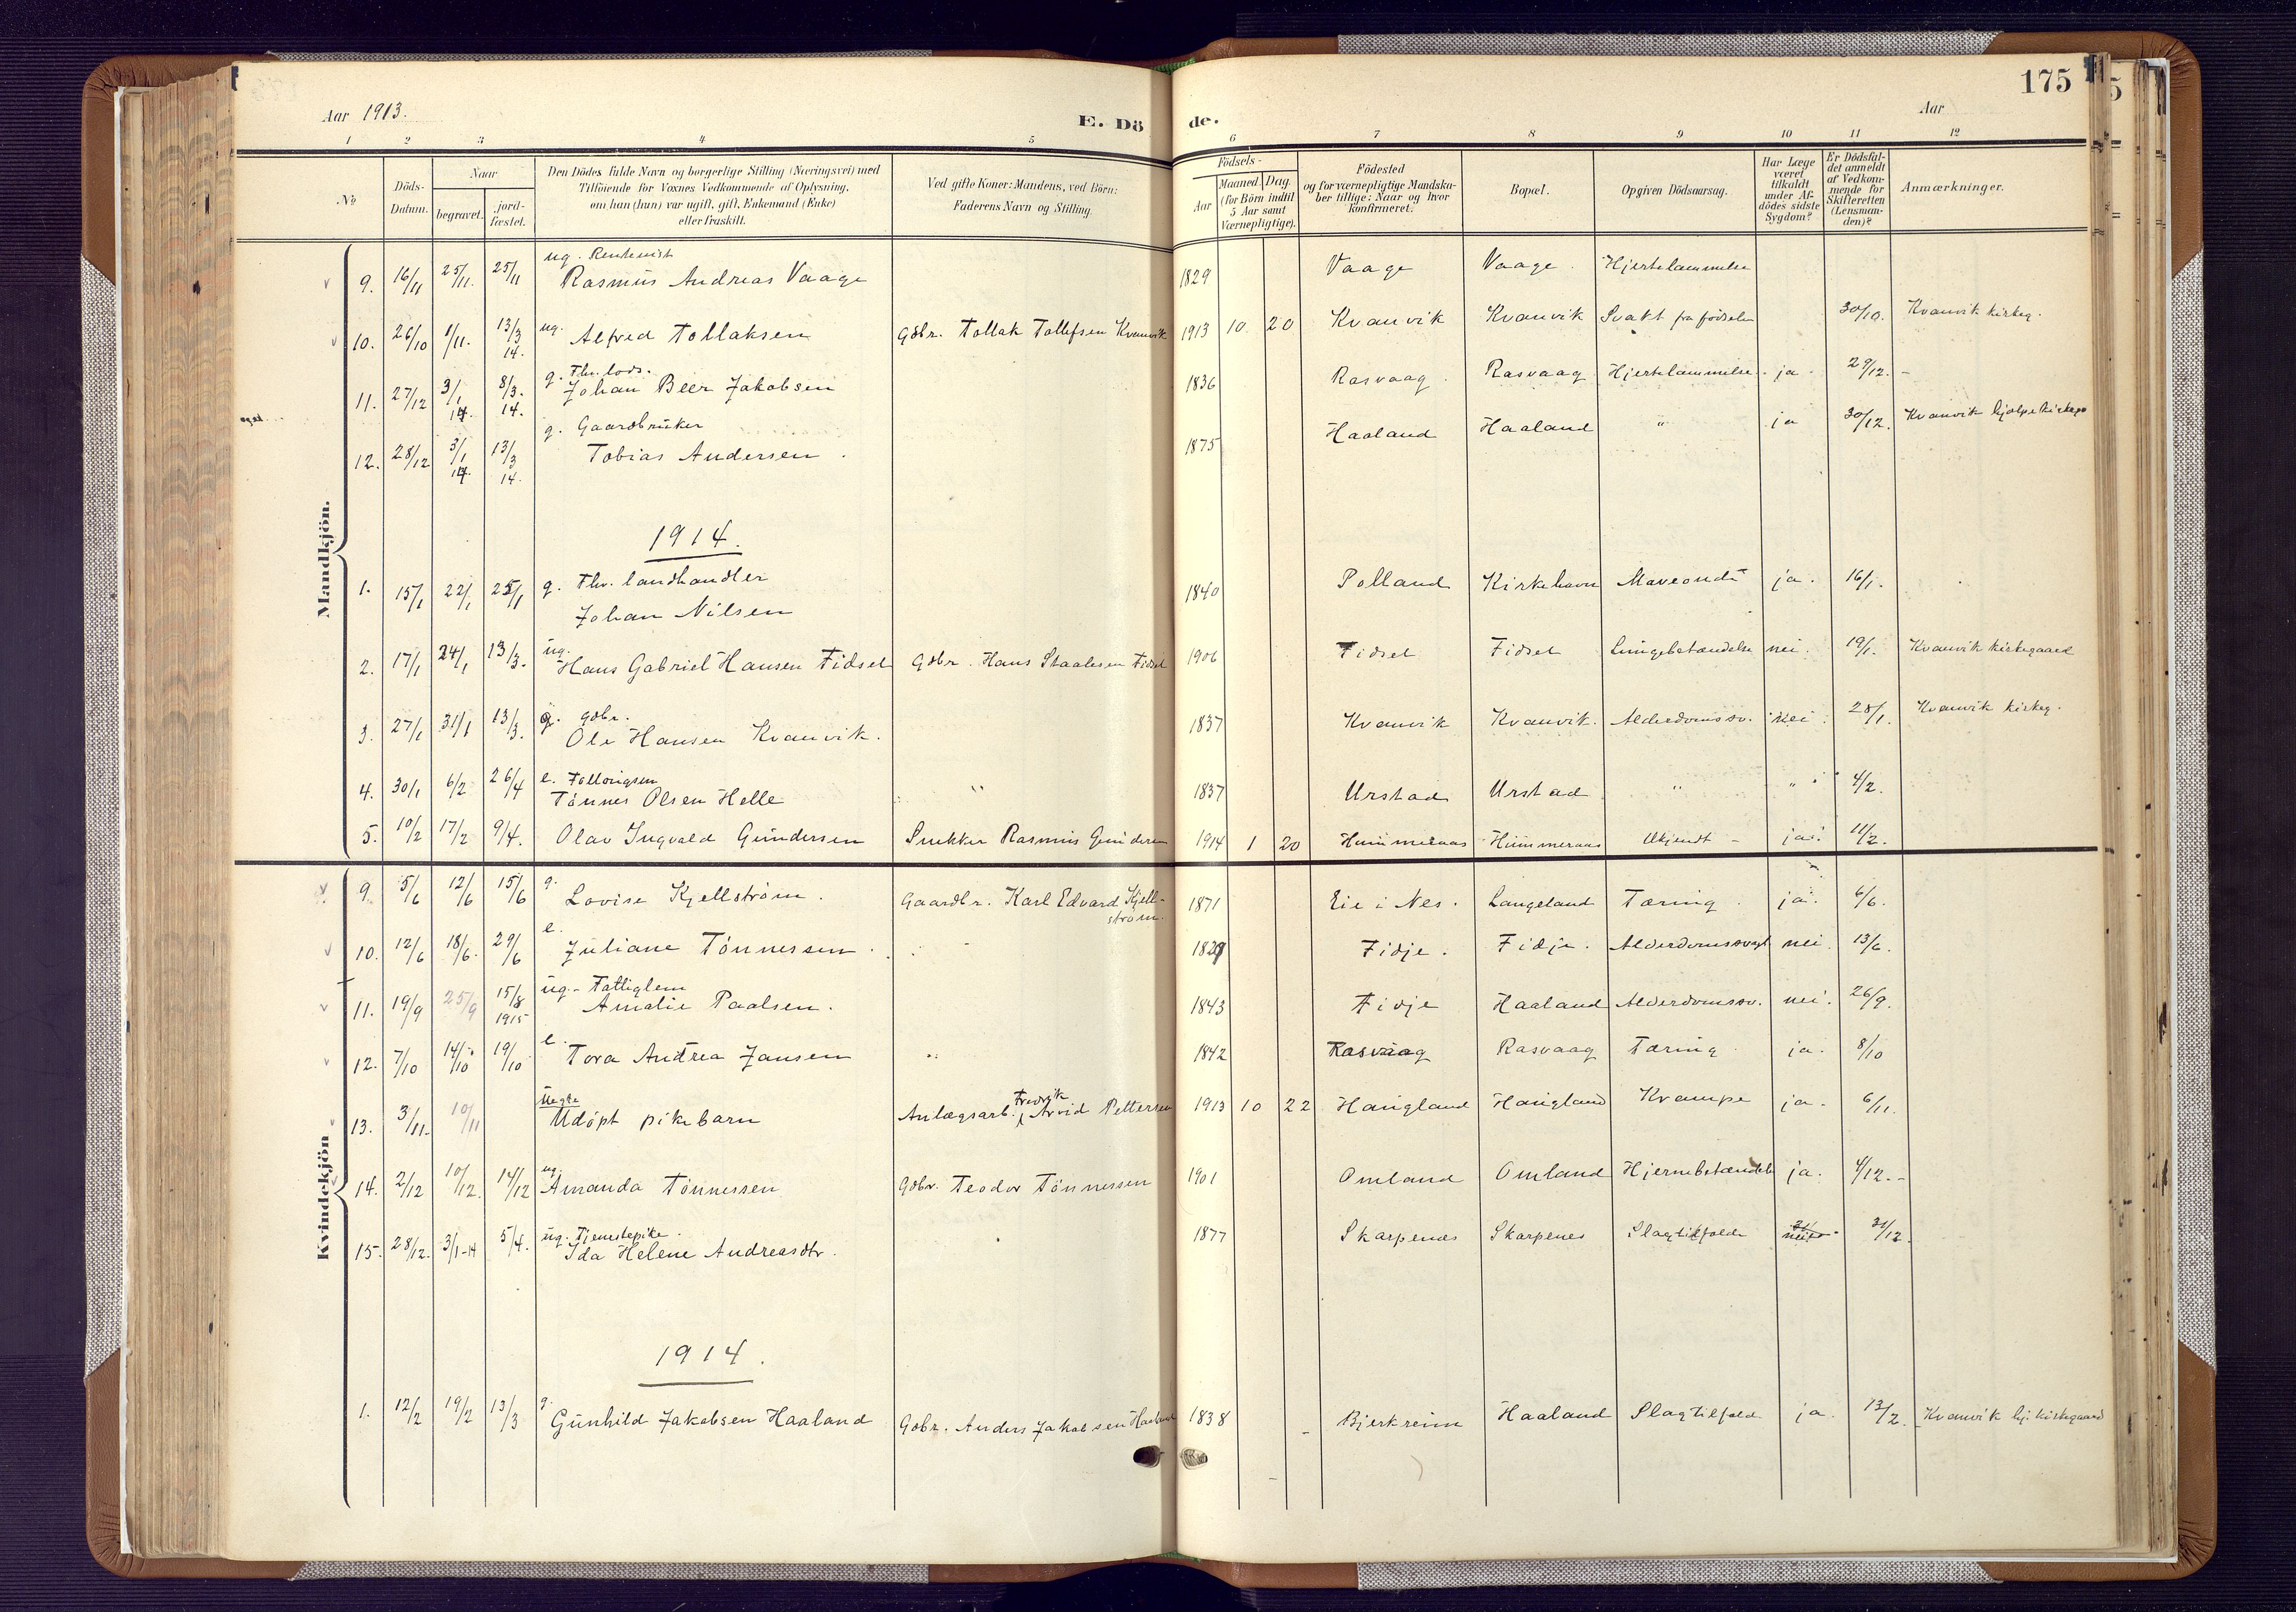 175
Aar 1913.
E. Dö de.
Aar
1 2 3 4 5 6 7 8 9 10 11 12
No
Döds-Datum.
Naar
begravet.
jord-fæstet.
Den Dödes fulde Navn og borgerlige Stilling (Næringsvei) med
Tilföiende for Voxnes Vedkommende af Oplysning,
om han (hun) var ugift, gift, Enkemand (Enke)
eller fraskilt.
Ved gifte Koner: Mandens, ved Börn:
Faderens Navn og Stilling.
Födsels-
Aar
Maaned. Dag.
(for Börn indtil
5 Aar samt
Værnepligtige).
Födested
og for værnepligtige Mandska-
ber tillige: Naar og hvor
konfirmeret.
Bopæl.
Opgiven Dödsaarsag.
Har Læge
været
tilkaldt
under Af-
dödes sidste
Sygdom?
Er Dödsfal-
det anmeldt
af Vedkom-
mende for
Skifteretten
(Lensman-
den)?
Anmærkninger.
Mandkjön.
ug. Rentenist
9. 16/11 25/11. 25/11 Rasmus Andreas Vaage 1829 Vaage Vaage. Hjertelammelse
10. 26/10 1/11. 13/3 14. ug. Alfred Tollaksen Gdbr. Tollak Tollefsen Kvanvik 1913 10. 20 Kvanvik Kvanvik Svakt fra födselen 30/10. Kvanvik kirkeg.
g. Fhv. lods.
11. 27/12 3/1 14. 8/3. 14. Johan Beer Jakobsen 1836 Rasvaag. Rasvaag Hjertelammelse ja. 29/12.
g. Gaardbruker
12. 28/12 3/1 14. 13/3 14. Tobias Andersen. 1875 Haaland Haaland " ja 30/12. Kvanvik hjelpekirkeg.
1914.
1. 15/1 22/1 25/1 g. Fhv. landhandler
Johan Nilsen 1840 Polland Kirkehavn Maveondt ja. 16/1.
2. 17/1 24/1 13/3. ug. Hans Gabriel Hansen Fidsel Gdbr. Hans Staalesen Fidsel 1906 Fidsel Fidsel Lungebetændelse nei. 19/1. Kvanvik kirkegaard
3. 27/1 31/1 13/3. g. gdbr.
Ole Hansen Kvanvik. 1837 Kvanvik Kvanvik. Alderdomssv. nei. 28/1. Kvanvik kirkeg.
4. 30/1 6/2 26/4 e.
Tönnes Olsen Helle " 1837 Urstad Urstad " " 4/2.
5. 10/2 17/2 9/4. Olav Ingvald Gundersen Snekker Rasmus Gundersen 1914 1 20 Hummeraas Hummeraas Ukjendt - ja. 11/2.
Kvindekjön
9. 5/6 12/6 15/6 g. Lovise Kjellström. Gaardbr. Karl Edvard Kjell-
ström. 1871 Eie i Nes. Langeland Tæring. ja. 6/6.
10. 12/6 18/6. 29/6 e. Juliane Tönnessen. Fidje. Fidje. Alderdomssvagh. nei. 13/6.
ug. - Fattiglem
11. 19/9 25/9 15/8 1915 Amalie Paalsen. 1843 Fidje Haaland Alderdomssv. nei. 26/9.
12. 7/10 14/10 19/10 e. Tora Andrea Jansen " 1842 Rasvaag Rasvaag Tæring ja. 8/10
13. 3/11. 10/11 Uegte
Udöpt pikebarn Anlægsarb. Fredrik Arvid Pettersen 1913 10 22 Haugland Haugland Krampe ja. 6/11.
14. 2/12 10/12. 14/12 ug. Amanda Tönnessen Gdbr. Teodor Tönnessen 1901 Omland Omland Hjernebetændelse ja. 4/12.-
15. 28/12. 3/1-14 5/4. ug. Tjenestepike.
Ida Helene Andreasdtr. 1877 Skarpenes Skarpenes Slagtilfælde nei 31/12.
1914.
1. 12/2 19/2 13/3 g. Gunhild Jakobsen Haaland Gdbr. Anders Jakobsen Haaland 1838 Bjerkreim Haaland Slagtilfæld ja. 13/2. Kvanvik hj. kirkegaard